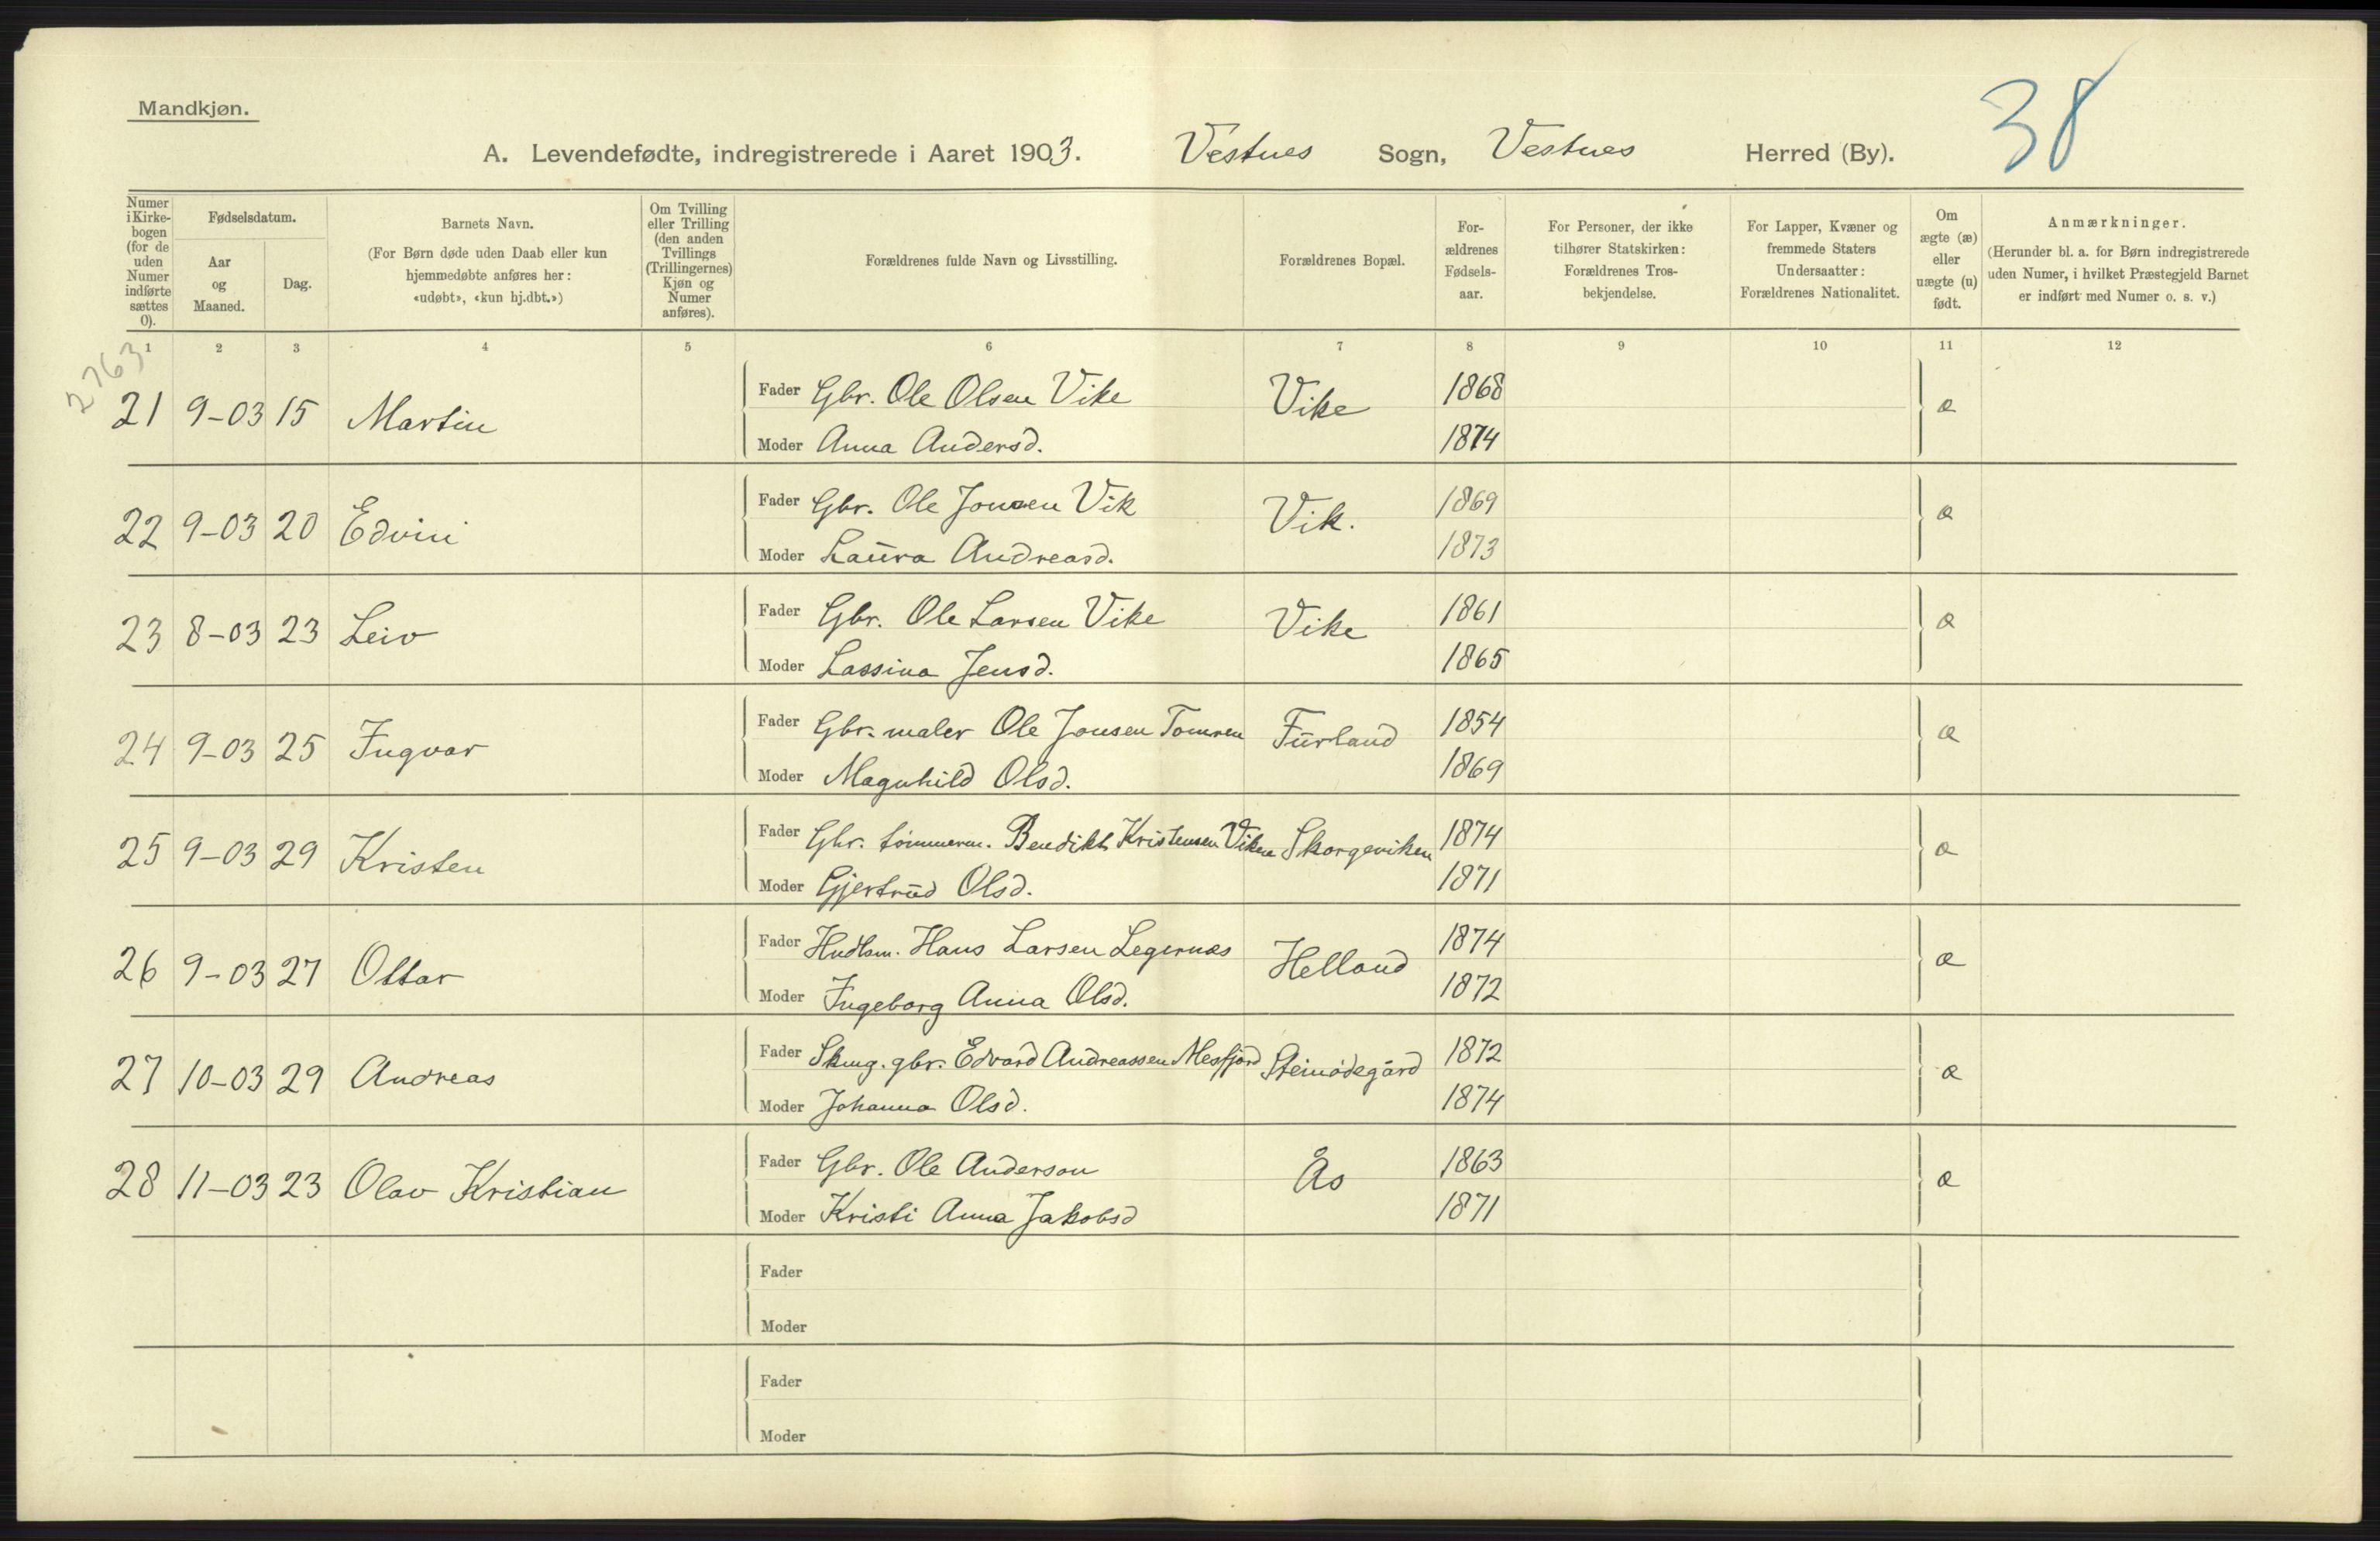 Mandkjøn.
38
A. Levendefødte, indregistrerede i Aaret 1903. Vestnes Sogn, Vestnes Herred (By).
Numer i Kirkebogen (for de uden Numer indførte sættes 0).
Fødselsdatum.
Aar og Maaned.
Dag.
Barnets Navn.
(For Børn døde uden Daab eller kun hjemmedøbte anføres her: «udøbt», «kun hj.dbt.»)
Om Tvilling eller Trilling (den anden Tvillings (Trillingernes) Kjøn og Numer anføres).
Forældrenes fulde Navn og Livsstilling.
Forældrenes Bopæl.
Forældrenes Fødselsaar.
For Personer, der ikke tilhører Statskirken: Forældrenes Trosbekjendelse.
For Lapper, Kvæner og fremmede Staters Undersaatter: Forældrenes Nationalitet.
Om ægte (æ) eller uægte (u) født.
Anmærkninger.
(Herunder bl. a. for Børn indregistrerede uden Numer, i hvilket Præstegjeld Barnet er indført med Numer o. s. v.)
1 2 3 4 5 6 7 8 9 10 11 12
2763
21 9-03 15 Martin Fader Gbr. Ole Olsen Vike Vike 1868 æ
Moder Anna Andersd. 1874
22 9-03 20 Edvin Fader Gbr. Ole Jonsen Vik Vik. 1869 æ
Moder Laura Andreasd. 1873
23 8-03 23 Leiv Fader Gbr. Ole Larsen Vike Vike 1861 æ
Moder Lassina Jensd. 1865
24 9-03 25 Ingvar Fader Gbr. maler Ole Jonsen Tomren Furland 1854 æ
Moder Magnhild Olsd. 1869
25 9-03 29 Kristen Fader Gbr. tømmerm. Benedikt Kristensen Viken Skorgeviken 1874 æ
Moder Gjertrud Olsd. 1871
26 9-03 27 Ottar Fader Hndlsm. Hans Larsen Legernæs Helland 1874 æ
Moder Ingeborg Anna Olsd. 1872
27 10-03 29 Andreas Fader Skmg. gbr. Edvard Andreassen Mesfjord Steinødegård 1872 æ
Moder Johanna Olsd. 1874
28 11-03 23 Olav Kristian Fader Gbr. Ole Anderson Ås 1863 æ
Moder Kristi Anna Jakobsd 1871
Fader
Moder
Fader
Moder